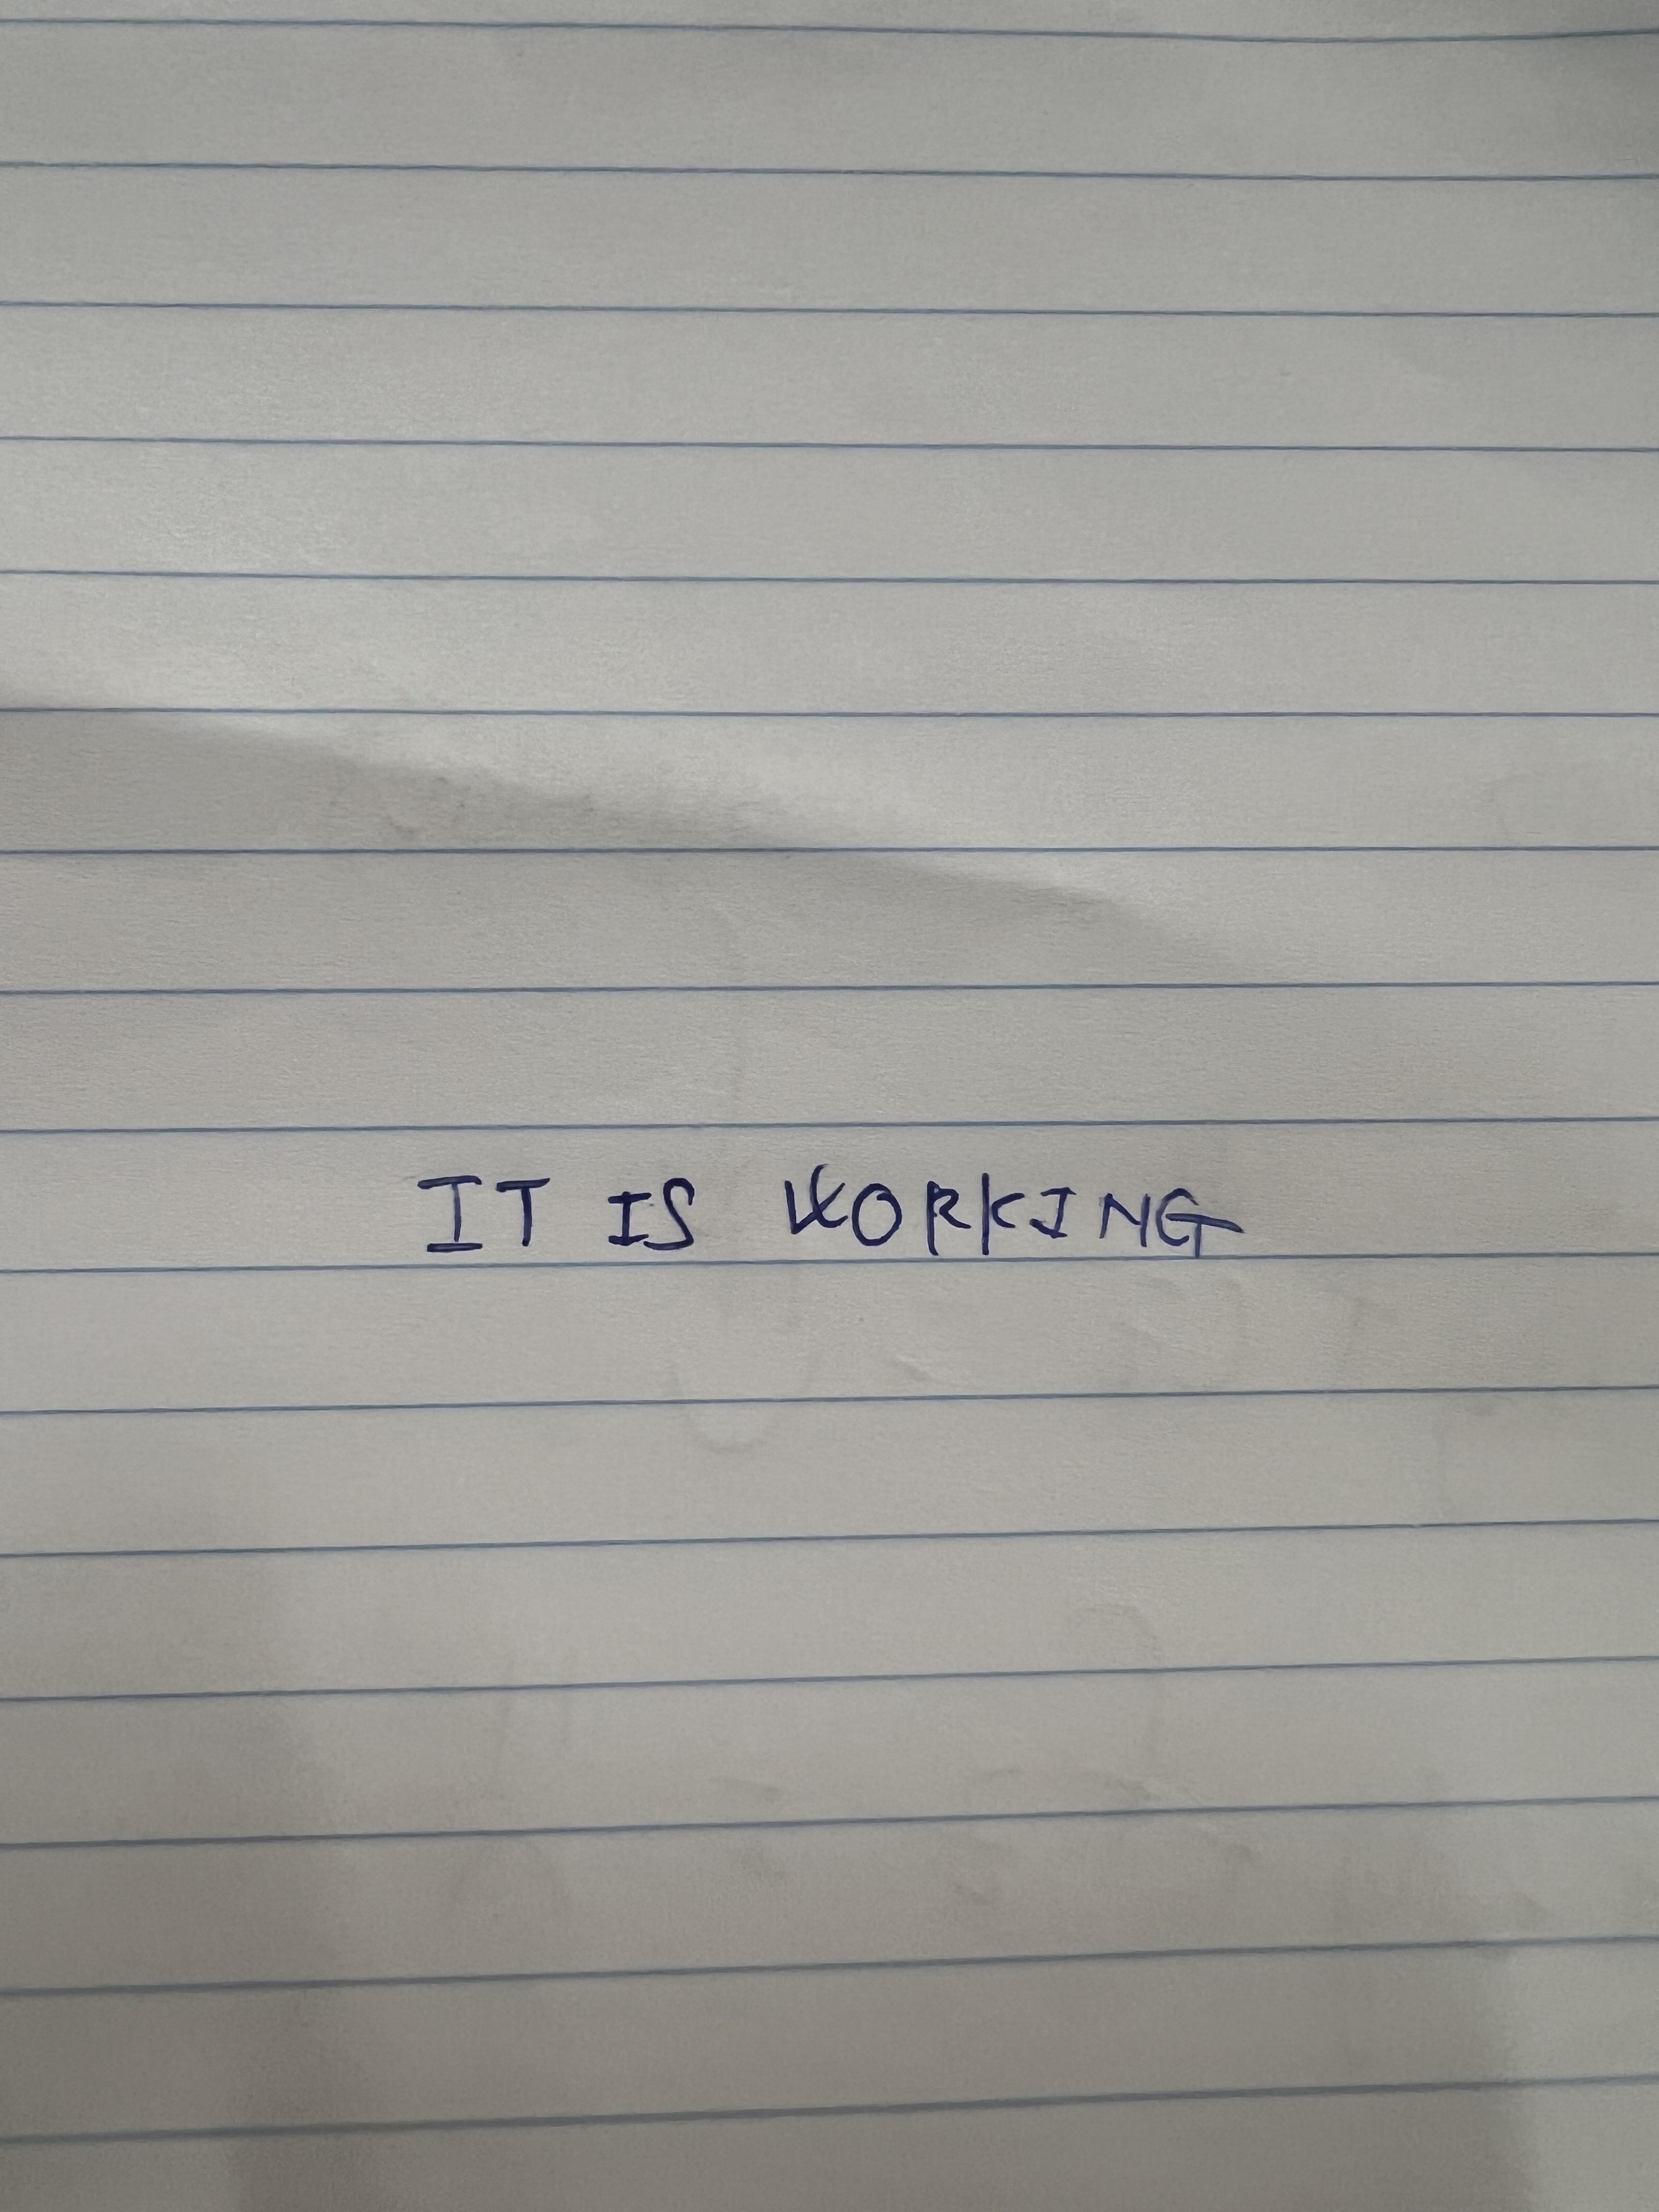 IT IS WORKING